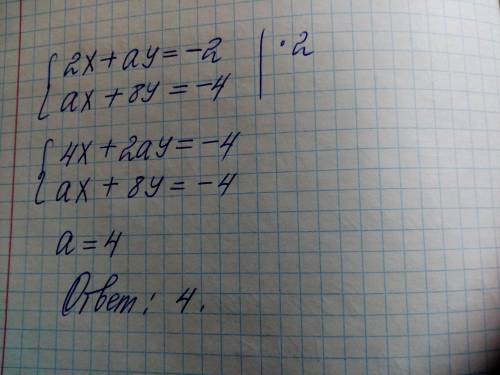 2x + ay = -2 | · 2
ax + 8y = -4
4x + 2ay = -4
ax + 8y = -4
a = 4
Ответ: 4.